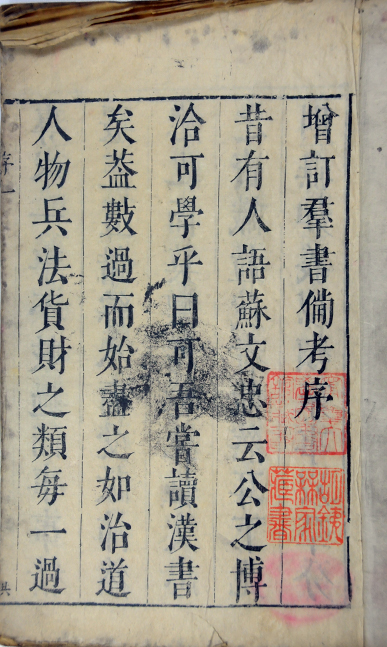 增訂羣書備考序
昔有人語蘇文忠云公之博
洽可學乎曰可吾嘗讀漢書
矣葢數過而始盡之如治道
人物兵法貨財之類每一過
序一